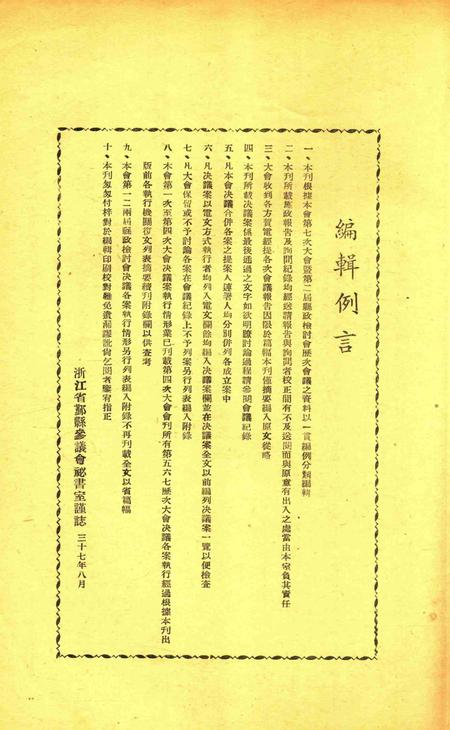 編輯例言
一、本刊根據本會第七次大會暨第二屆縣政檢討會歷次會議之資料以一貫編例分類編輯
二、本刊所載施政報告及詢問紀錄均經送請報告與詢問者校正間有不及送閱而與原意有出入之處當由本室負其責任
三、大會收到各方賀電經提各次會議報告因限於篇幅本刊僅摘要編入原文從略
四、本刊所載決議案係最後通過之文字如欲明瞭討論過程請參閱會議紀錄
五、凡本會決議合併各案之提案人連署人均分別併列各成立案中
六、凡決議案以電文方式執行者均列入電文欄餘均編入決議案欄並在決議案全文以前編列決議案一覽以便檢查
七、凡大會保留或不予討論各案在會議紀錄上不予列案另行列表編入附錄
八、本會第一次至第四次大會決議案執行情形業已刊載第四次大會會刊所有第五六七歷次大會決議各案執行經過根據本刊出
版前各執行機關復文列表摘要續刊附錄欄以供查考
九、本會第一二兩屆縣政檢討會決議各案執行情形另行列表編入附錄不再刊載全文以省篇幅
十、本刊匆匆付梓對於編輯印刷校對難免遺漏謬訛尚乞閱者鑒宥指正
浙江省鄞縣參議會祕書室謹誌 三十七年八月